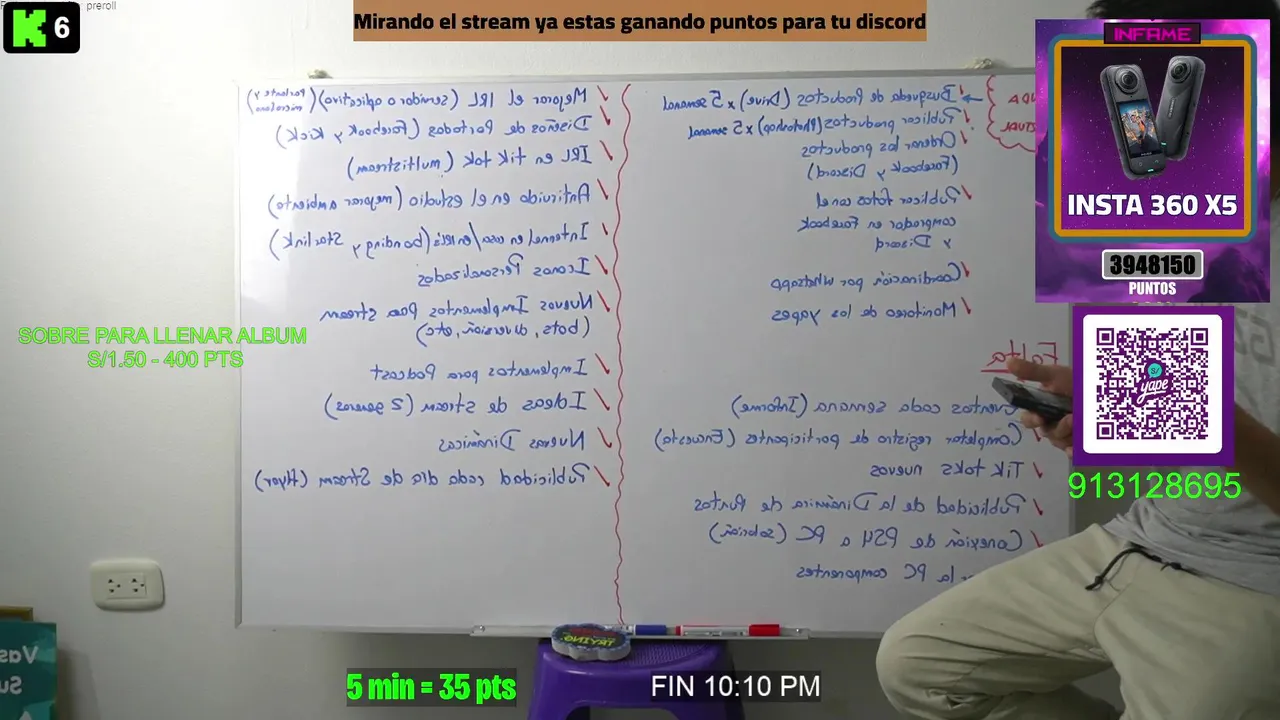 preroll
K 6
Mirando el stream ya estas ganando puntos para tu discord
INFAME
INSTA 360 X5
3948150
PUNTOS
yape
913128695
SOBRE PARA LLENAR ALBUM
S/1.50 - 400 PTS
Mejorar el IRL (servidor o aplicativo) (Parlante y microfono)
Diseños de Portadas (Facebook y Kick)
IRL en tik tok (multistream)
Antiruido en el estudio (mejorar ambiente)
Internet en casa/en irl's (bonding y Starlink)
Iconos Personalizados
Nuevos Implementos Para stream
(bots, diversión, etc)
Implementos para Podcast
Ideas de stream (2 generos)
Nuevas Dinámicas
Publicidad cada día de Stream (Flyer)
Busqueda de Productos (Drive) x 5 semanal
Publicar productos (Photoshop) x 5 semanal
Ordenar los productos
(Facebook y Discord)
Publicar fotos con el
comprador en Facebook
y Discord
Coordinación por whatsapp
Monitoreo de los yapes
Falta
Eventos cada semana (Informe)
Completar registro de participantes (Encuesta)
Tik toks nuevos
Publicidad de la Dinámica de Puntos
Conexión de PS4 a PC (sabrian)
la PC componentes
TRYING
5 min = 35 pts
FIN 10:10 PM